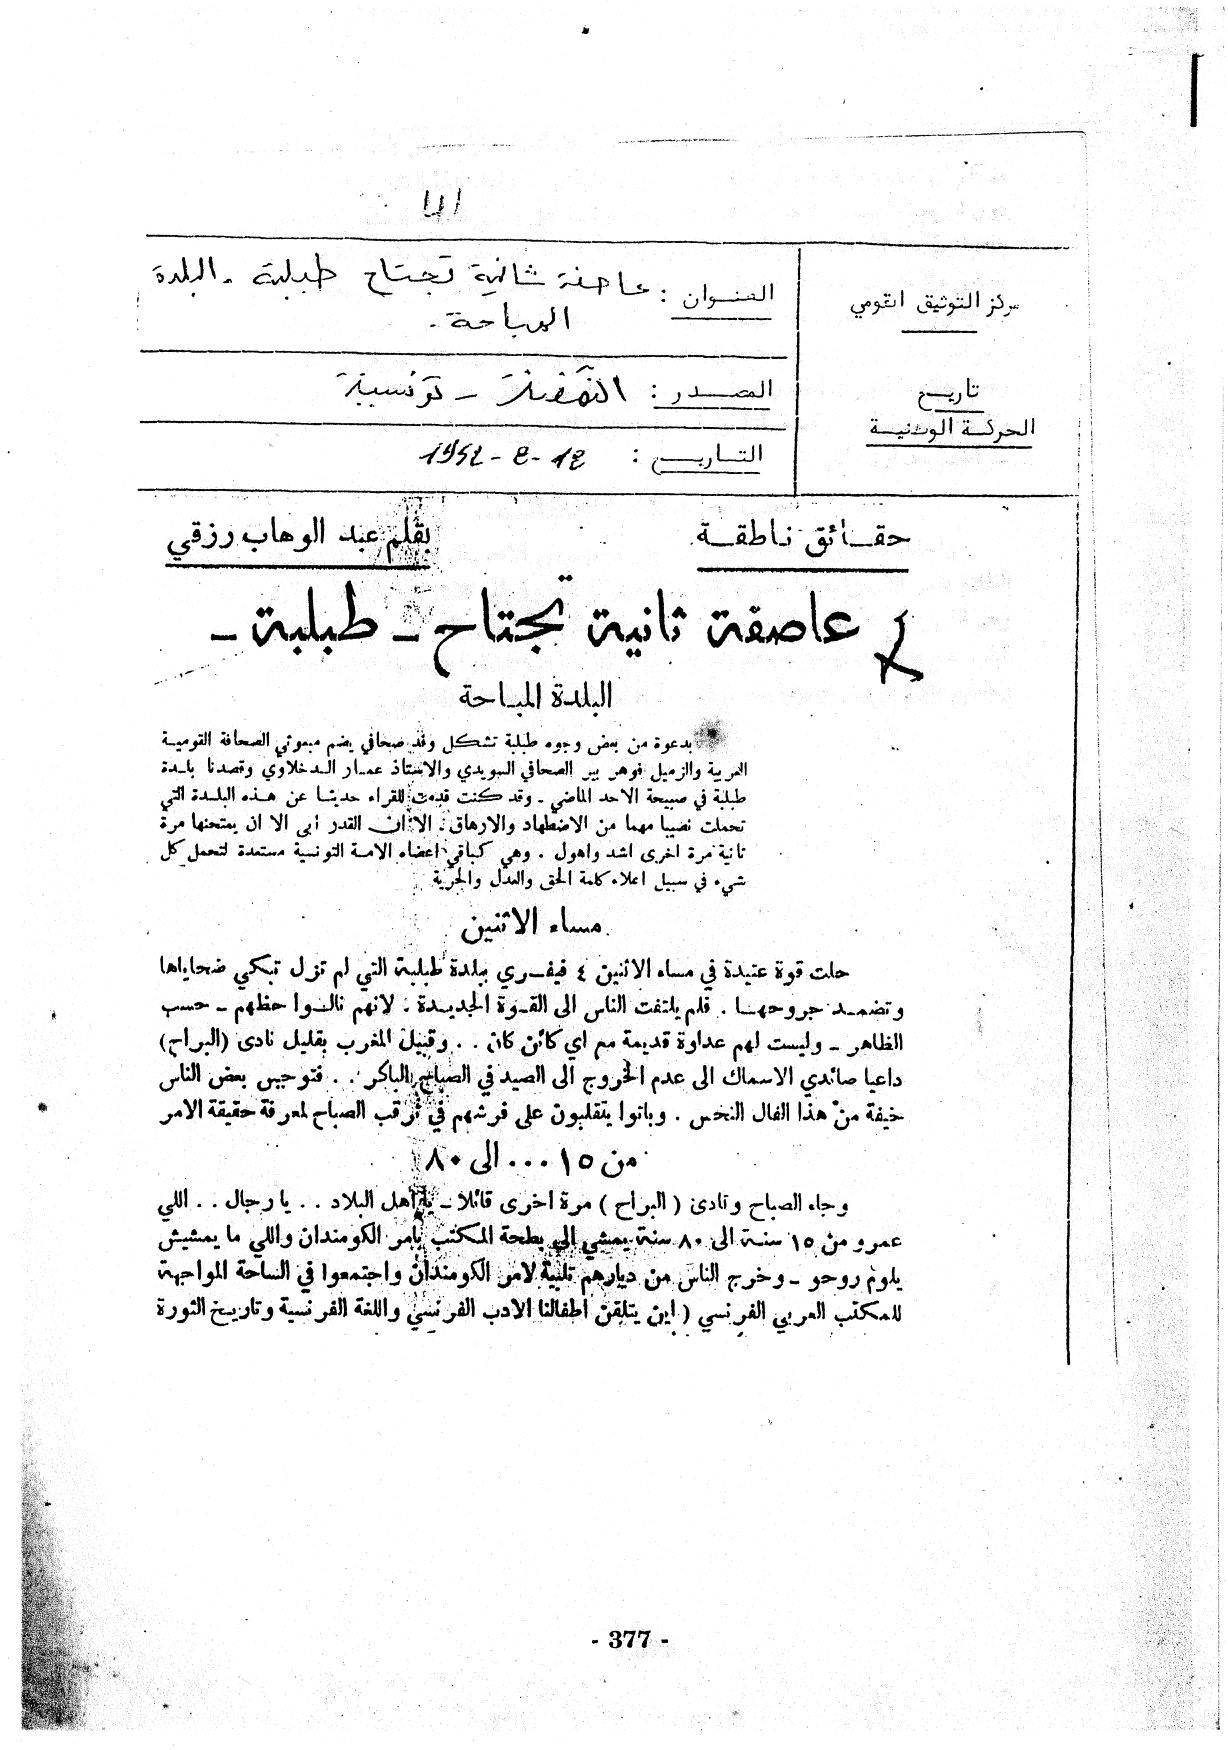 مركز التوثيق القومي
تاريخ
الحركة الوطنية
العنوان : عاصفة ثانية تجتاح طبلبة - البلدة
المباحة .
المصدر : النهضة - تونسية
التاريخ : 12-2-1952
حقائق ناطقة
بقلم عبد الوهاب رزقي
عاصفة ثانية تجتاح - طبلبة -
البلدة المباحة
بدعوة من بعض وجوه طبلبة تشكل وفد صحافي يضم مبعوثي الصحافة القومية
العربية والزميل فوهر بير الصحافي السويدي والاستاذ عمار الدخلاوي وقصدنا بلدة
طبلبة في صبيحة الاحد الماضي - وقد كنت قدمت للقراء حديثا عن هذه البلدة التي
تحملت نصيبا مهما من الاضطهاد والارهاق . الا ان القدر ابى الا ان يمتحنها مرة
ثانية مرة اخرى اشد واهول . وهي كباقي اعضاء الامة التونسية مستعدة لتحمل كل
شيء في سبيل اعلاء كلمة الحق والعدل والحرية
مساء الاثنين
حلت قوة عتيدة في مساء الاثنين ٤ فيفري ببلدة طبلبة التي لم تزل تبكي ضحاياها
وتضمد جروحها . فلم يلتفت الناس الى القوة الجديدة : لانهم نالوا حظهم - حسب
الظاهر - وليست لهم عداوة قديمة مع اي كائن كان . . وقبيل المغرب بقليل نادى (البراح)
داعيا صائدي الاسماك الى عدم الخروج الى الصيد في الصباح الباكر . . فتوجس بعض الناس
خيفة من هذا الفال النحس . وباتوا يتقلبون على فرشهم في ترقب الصباح لمعرفة حقيقة الامر
من ١٥ ... الى ٨٠
وجاء الصباح ونادى ( البراح ) مرة اخرى قائلا - يا اهل البلاد . . يا رجال . . اللي
عمرو من ١٥ سنة الى ٨٠ سنة يمشي الى بطحة المكتب بامر الكومندان واللي ما يمشيش
يلوم روحو - وخرج الناس من ديارهم تلبية لامر الكومندان واجتمعوا في الساحة المواجهة
للمكتب العربي الفرنسي ( اين يتلقن اطفالنا الادب الفرنسي واللغة الفرنسية وتاريخ الثورة
- 377 -